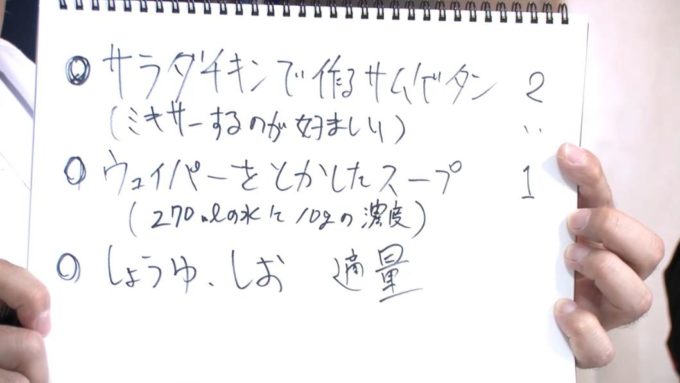 ◎サラダチキンで作るサムゲタン 2
(ミキサーするのが好ましい) :
○ウェイパーをとかしたスープ 1
(270mlの水に10gの濃度)
○しょうゆ、しお 適量